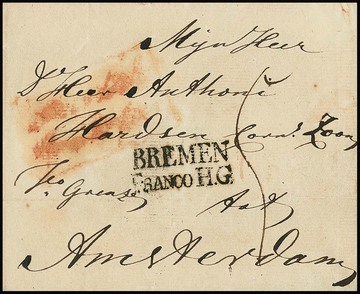 Mijn Heer
D' Heer Anthoni
Hardsen Corn: Zoon
BREMEN
FRANCO H.G
Amsterdam